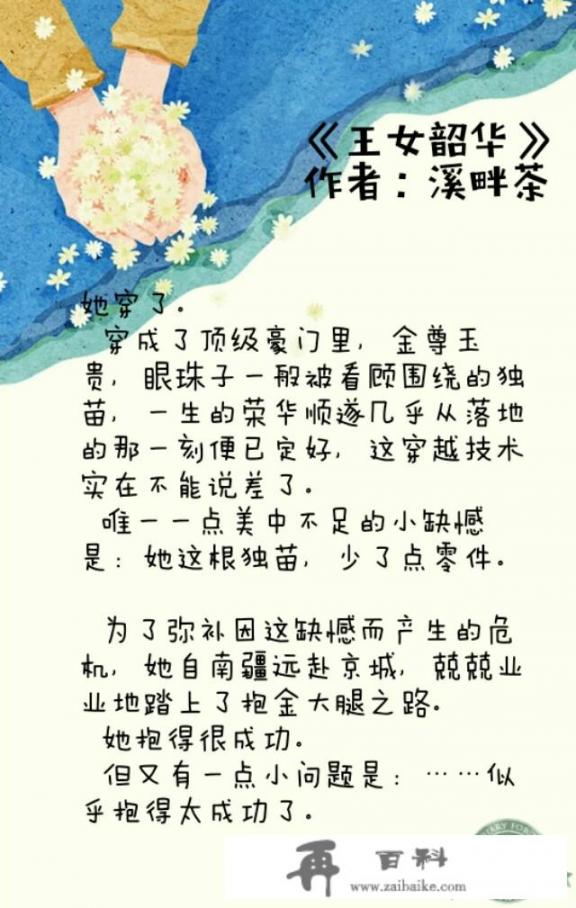 《王女韶华》
作者：溪畔茶
她穿了。
穿成了顶级豪门里，金尊玉
贵，眼珠子一般被看顾围绕的独
苗，一生的荣华顺遂几乎从落地
的那一刻便已定好，这穿越技术
实在不能说差了。
唯一一点美中不足的小缺憾
是：她这根独苗，少了点零件。
为了弥补因这缺憾而产生的危
机，她自南疆远赴京城，兢兢业
业地踏上了抱金大腿之路。
她抱得很成功。
但又有一点小问题是：……似
乎抱得太成功了。
再百科
www.zaibaike.com